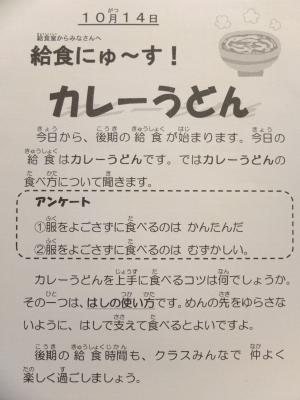 10月14日
給食室からみなさんへ
給食にゅ～す！
カレーうどん
今日から、後期の給食が始まります。今日の
給食はカレーうどんです。ではカレーうどんの
食べ方について聞きます。
アンケート
①服をよごさずに食べるのは かんたんだ
②服をよごさずに食べるのは むずかしい。
カレーうどんを上手に食べるコツは何でしょうか。
その一つは、はしの使い方です。めんの先をゆらさな
いように、はしで支えて食べるとよいですよ。
後期の給食時間も、クラスみんなで 仲よく
楽しく過ごしましょう。